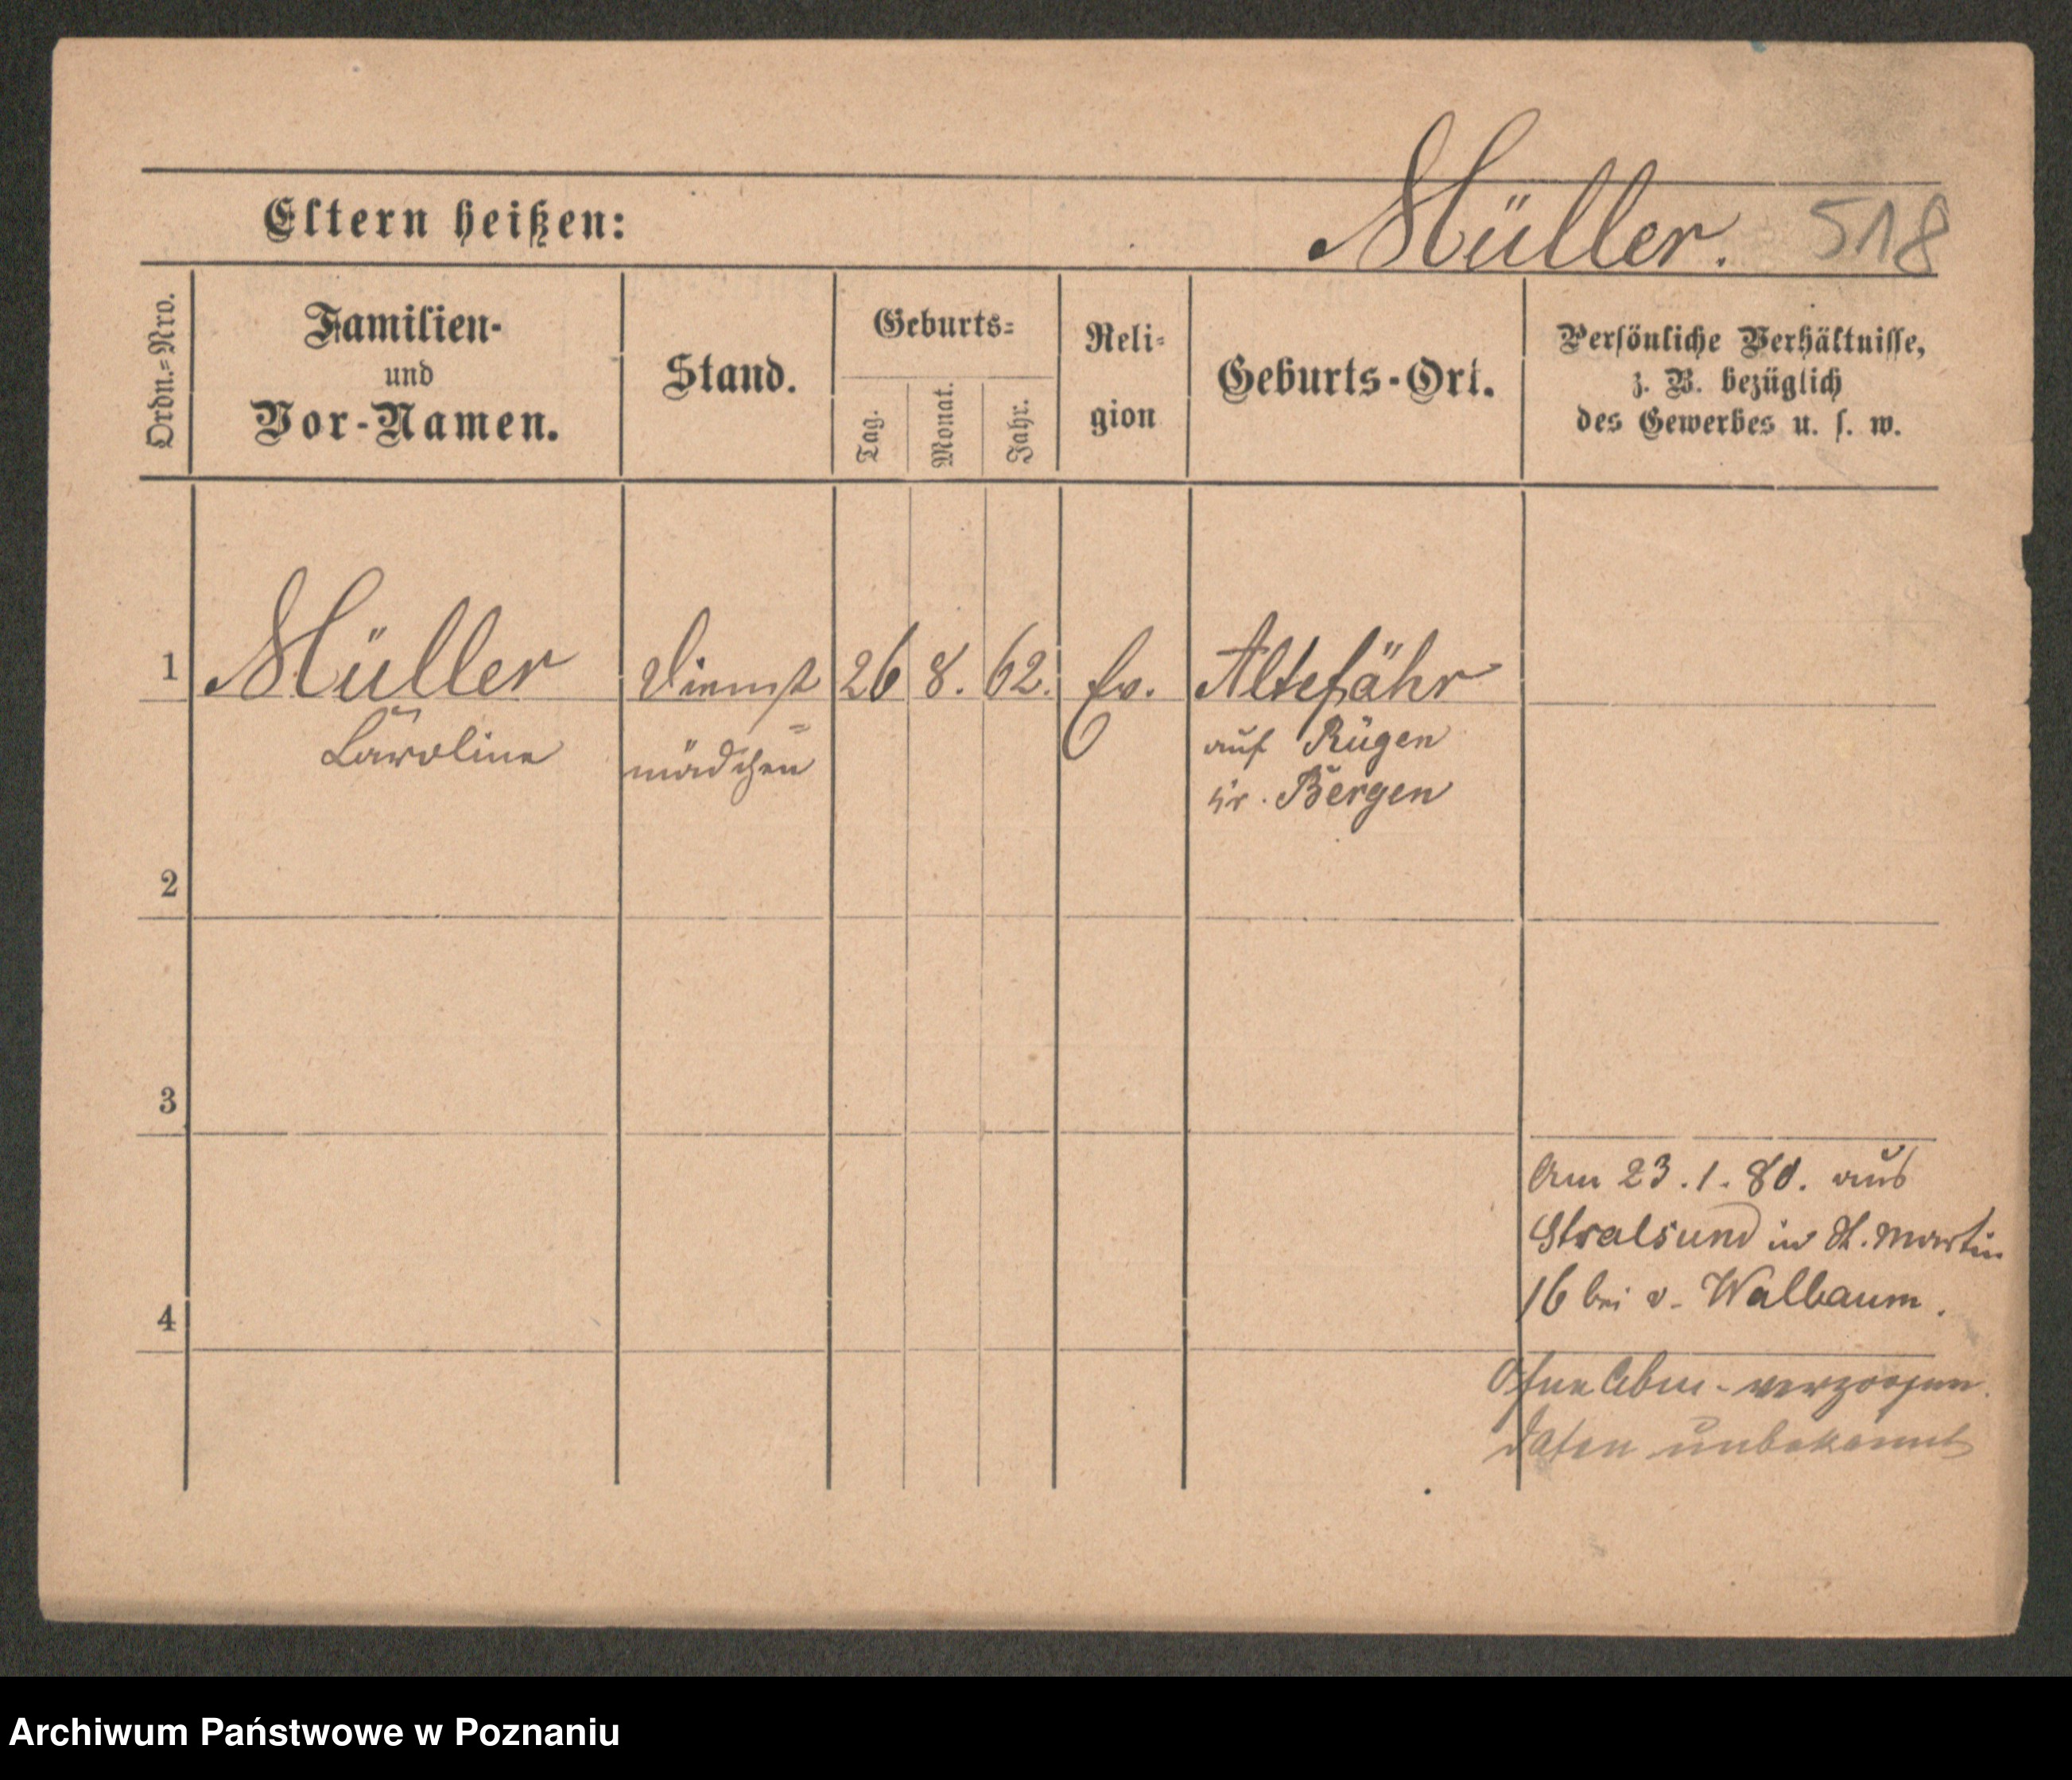 Eltern heißen: Müller. 518
Ordn.=Nro.
Familien-
und
Vor-Namen.
Stand.
Geburts=
Tag.
Monat.
Jahr.
Reli=
gion
Geburts-Ort.
Persönliche Verhältnisse,
z. B. bezüglich
des Gewerbes u. s. w.
1 Müller Dienst 26 8. 62. Ev. Altefähr
Caroline mädchen auf Rügen
Kr. Bergen
2
3
Am 23.1.80. aus
Stralsund in St. Martin
16 bei v. Walbaum.
4
Ohne Abm. verzogen.
Daten unbekannt
Archiwum Państwowe w Poznaniu